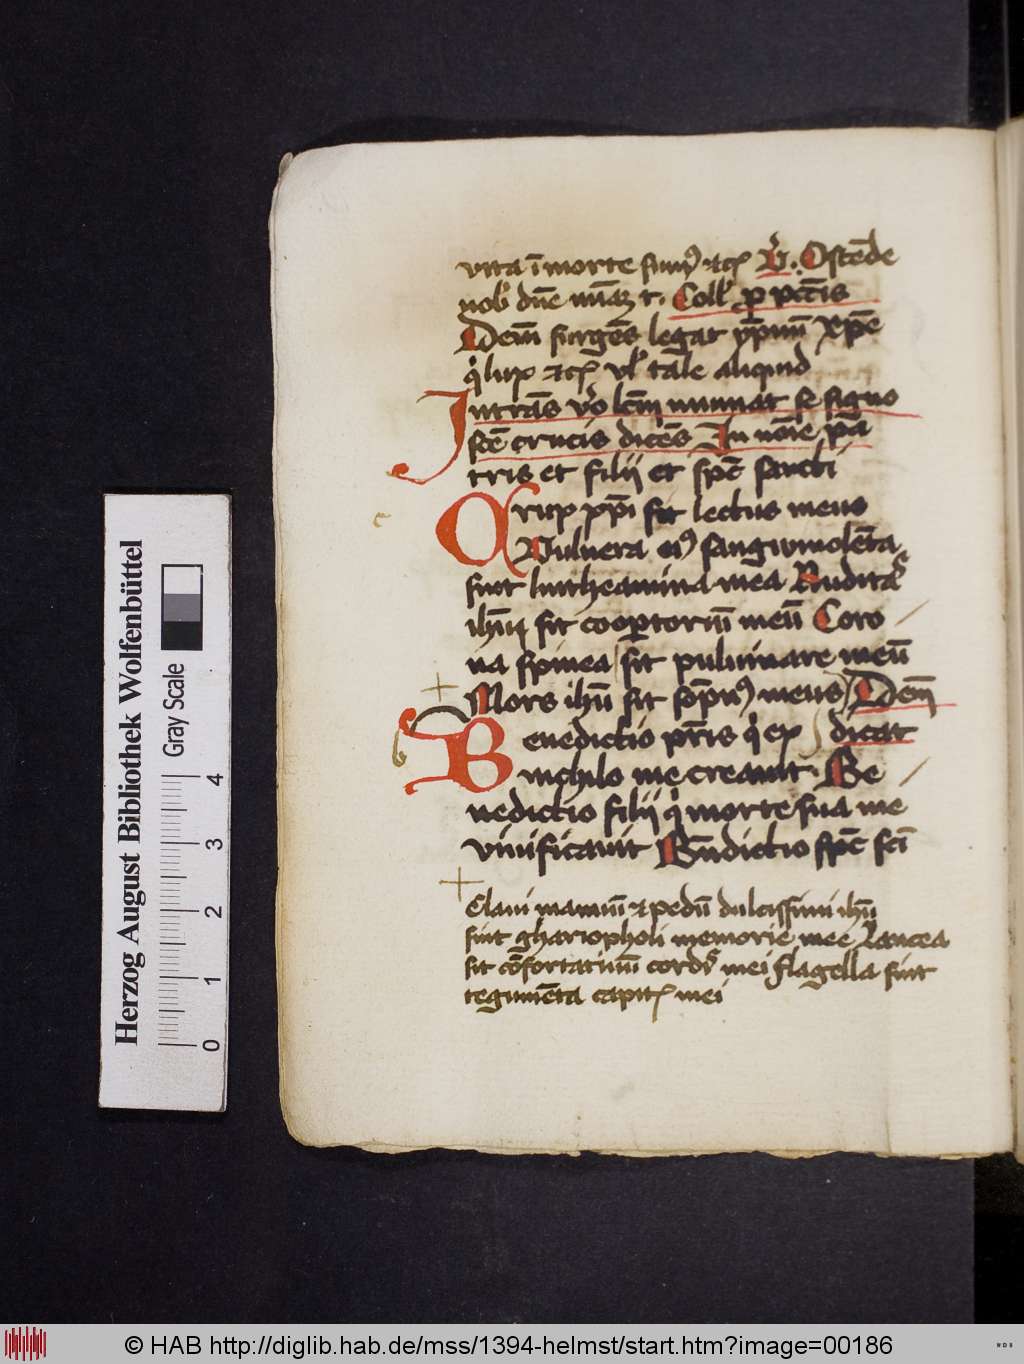 vita ī morte sumꝰ etcꝫ V̉. Ostēde
nobˢ dn̄e miaꝫ t. Coll' ꝓ pctīs
Deīn surgēs legat ympnū Xpē
q̇ lux etcꝫ vl' tale aliquid
Intrās v̉o lcm̄ muniat se signo
scē crucis dicēs In noīe pa
tris et filij et spc̄ sancti
Crux xpī sit lectus meus
Vulnera eiꝰ sanguinolēta
sint lintheamina mea Nudita
ihū sit coopertoriū meū Coro
na spinea sit puluinare meū
Mors ihū sit sōpnꝰ meus Deīn
Benedictio pr̄is q̇ ex dicat
nichilo me creauit. Be
nedictio filij q̇ morte sua me
viuificauit Bn̄dictio spc̄ scī
Claui manuū et pedū dulcissimi ihū
sint ghariopholi memorie mee Lancea
sit cōfortatiuū cordˢ mei flagella sint
tegumēta capitꝫ mei
Herzog August Bibliothek Wolfenbüttel
Gray Scale
0 1 2 3 4
© HAB http://diglib.hab.de/mss/1394-helmst/start.htm?image=00186